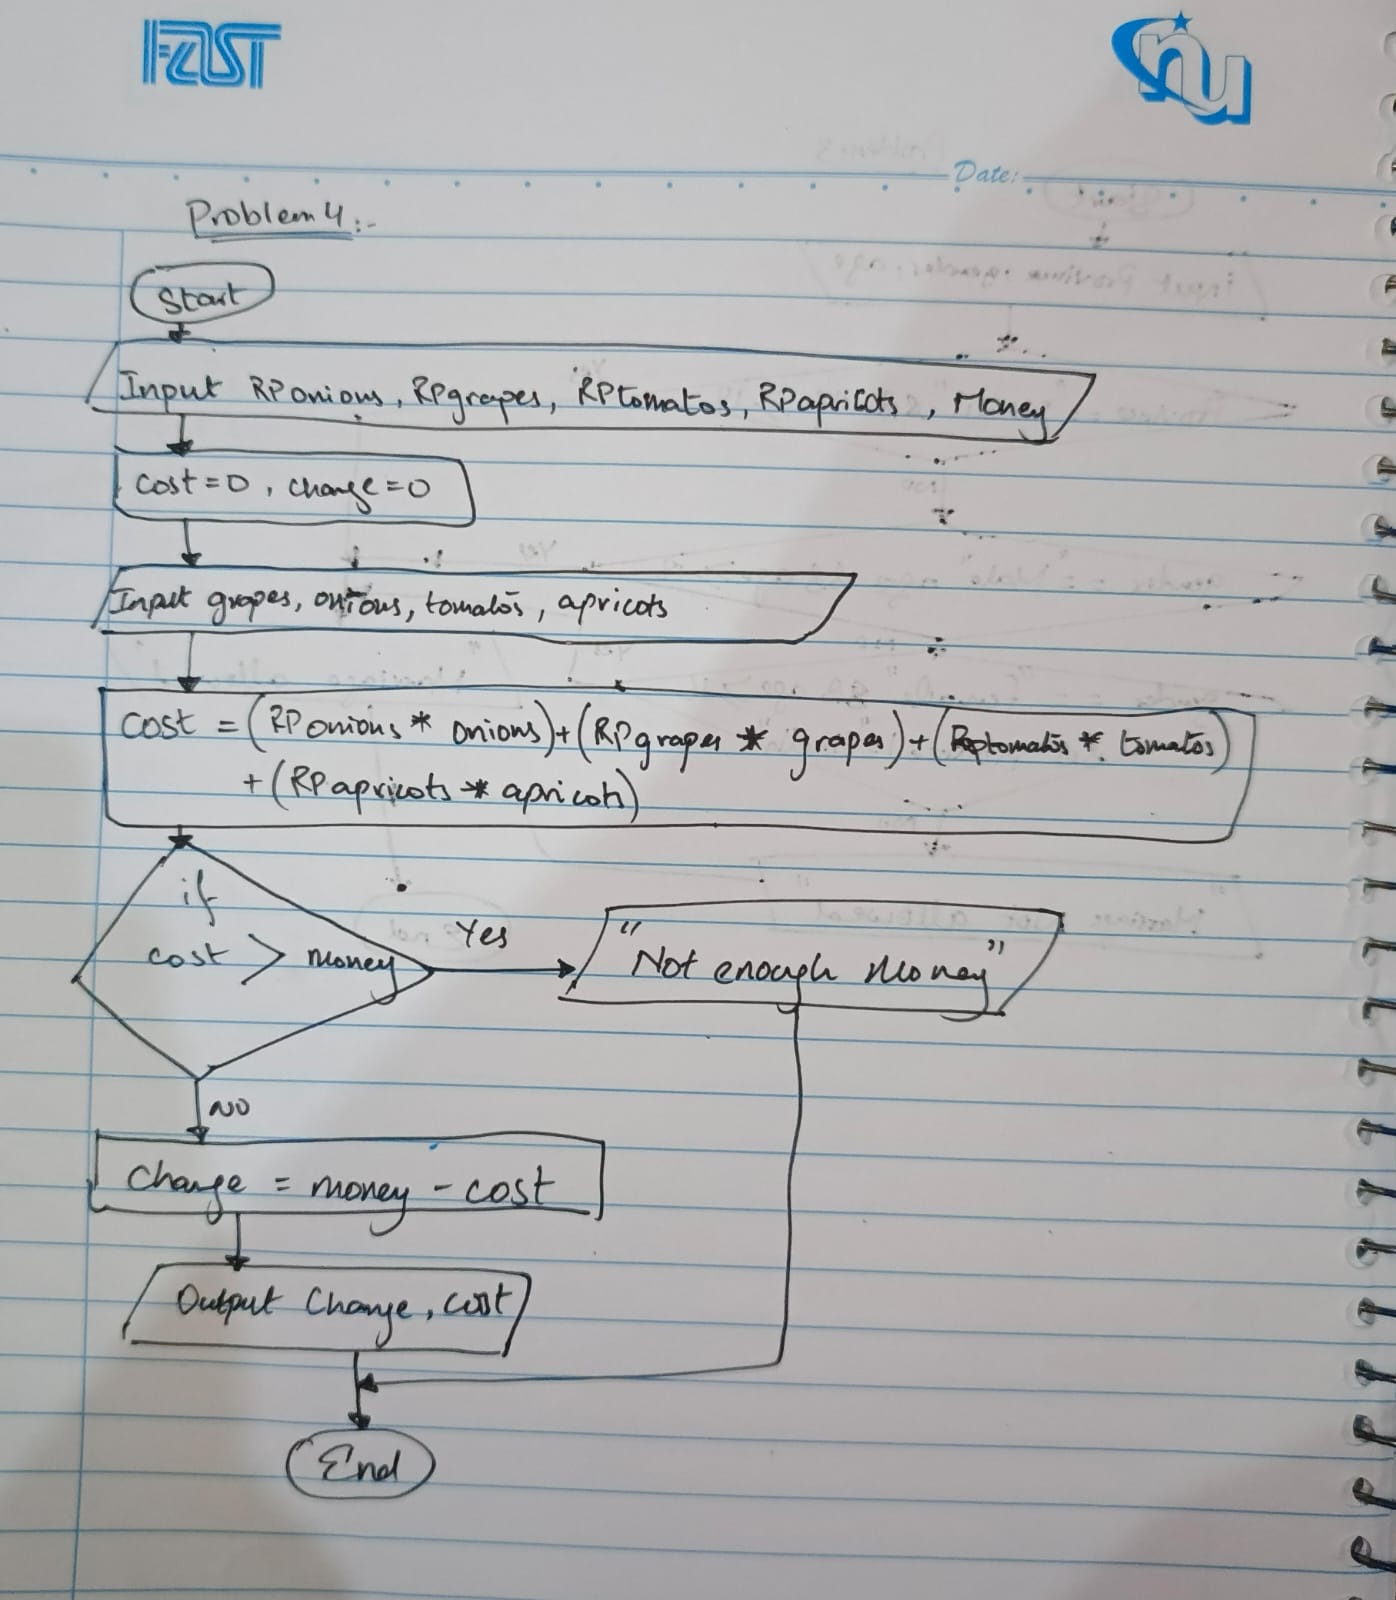 FAST
nu
Date:
Problem 4:-
Start
Input RPonions, RPgrapes, RPtomatos, RPapricots, Money
cost=0, change=0
Input grapes, onions, tomatos, apricots
cost = (RPonions * onions)+(RPgrapes * grapes)+(RPtomatos * tomatos)
+(RPapricots * apricots)
if
cost > money
Yes
"Not enough Money"
NO
Change = money - cost
Output Change, cost
End